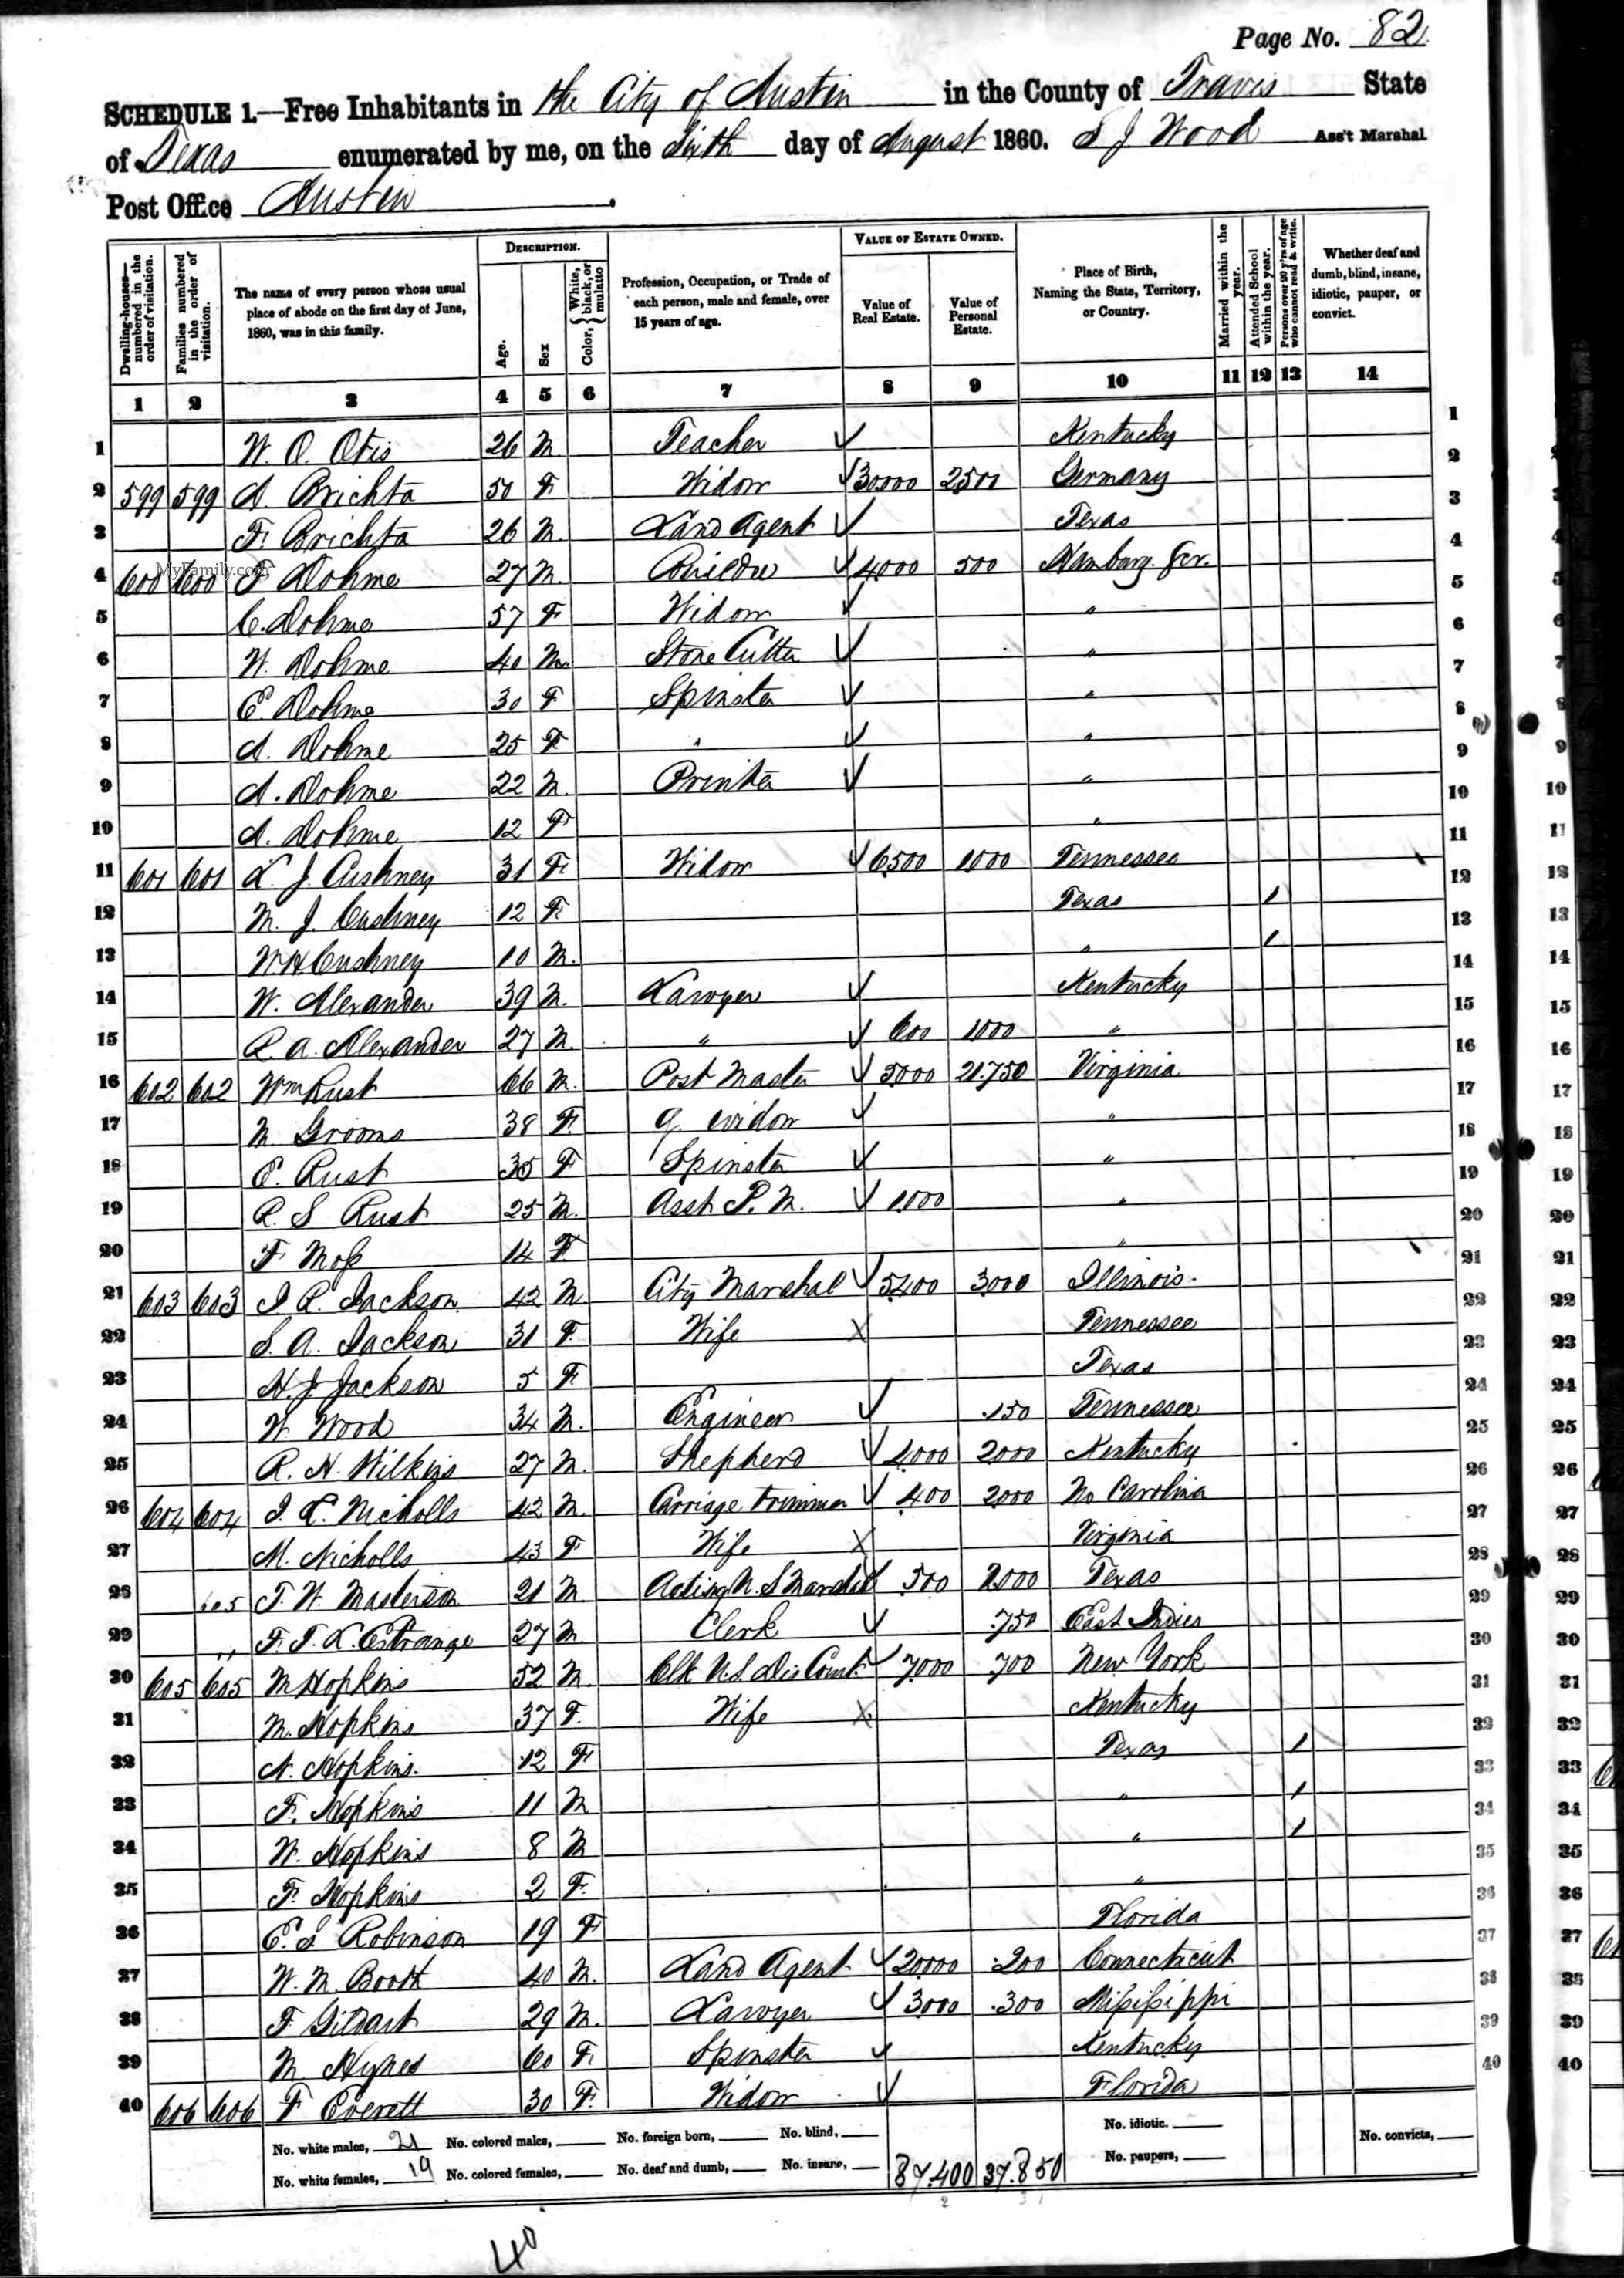 Page No. 82
SCHEDULE 1.—Free Inhabitants in the City of Austin in the County of Travis State
of Texas enumerated by me, on the Sixth day of August 1860. S J Wood Ass't Marshal
Post Office Austin.
Dwelling-houses—numbered in the order of visitation. Families numbered in the order of visitation. The name of every person whose usual place of abode on the first day of June, 1860, was in this family. DESCRIPTION. Age. Sex Color, White, black, or mulatto Profession, Occupation, or Trade of each person, male and female, over 15 years of age. VALUE OF ESTATE OWNED. Value of Real Estate. Value of Personal Estate. Place of Birth, Naming the State, Territory, or Country. Married within the year. Attended School within the year. Persons over 20 y'rs of age who cannot read & write. Whether deaf and dumb, blind, insane, idiotic, pauper, or convict.
1 2 3 4 5 6 7 8 9 10 11 12 13 14
1 W. O. Otis 26 M Teacher Kentucky 1
2 599 599 A. Brichta 50 F Widow 30000 2500 Germany 2
3 F. Brichta 26 M. Land Agent Texas 3
MyFamily.com
4 600 600 F Dohme 27 M. Builder 4000 500 Hamburg. Ger. 4
5 C. Dohme 57 F Widow " 5
6 W. Dohme 40 M. Stone Cutter " 6
7 E. Dohme 30 F Spinster " 7
8 A. Dohme 25 F " " 8
9 A. Dohme 22 M. Printer " 9
10 A. Dohme 12 F " 10
11 601 601 L. J. Cushney 31 F Widow 6500 1000 Tennessee 11
12 M. J. Cushney 12 F. Texas 1 12
13 W H Cushney 10 M. " 1 13
14 W. Alexander 39 M. Lawyer Kentucky 14
15 R. A. Alexander 27 M. " 600 1000 " 15
16 602 602 Wm Rust 66 M. Post Master 5000 21.750 Virginia 16
17 M Grooms 38 F. widow " 17
18 E. Rust 35 F Spinster " 18
19 R. S Rust 25 M. Asst P. M. 1000 " 19
20 F Moss 14 F " 20
21 603 603 J. R. Jackson 42 M City Marshal 5400 3000 Illinois. 21
22 S. A. Jackson 31 F. Wife X Tennessee 22
23 H. J. Jackson 5 F. Texas 23
24 W Wood 34 M. Engineer 150 Tennessee 24
25 R. H. Wilkins 27 M. Shepherd 4000 2000 Kentucky 25
26 604 604 J. L. Nicholls 42 M. Carriage trimmer 400 2000 No Carolina 26
27 M. Nicholls 43 F Wife X Virginia 27
28 605 T. W. Masterson 21 M Acting U. S Marshal 500 2000 Texas 28
29 " F. T. L. Estrange 27 M Clerk 750 East Indies 29
30 605 605 M Hopkins 52 M. Clk U.S. Dis Court 7000 700 New York 30
31 M. Hopkins 37 F. Wife X Kentucky 31
32 N. Hopkins. 12 F Texas 1 32
33 F. Hopkins 11 M " 1 33
34 W. Hopkins 8 M " 1 34
35 F. Hopkins 2 F. " 35
36 E. S Robinson 19 F Florida 36
37 W. M. Booth 40 M. Land Agent 20000 200 Connecticut 37
38 F Gildart 29 M. Lawyer 3000 300 Mississippi 38
39 M Hynes 60 F. Spinster Kentucky 39
40 606 606 F Everett 30 F. Widow Florida 40
No. white males, 21 No. colored males, No. foreign born, No. blind, No. idiotic. No. convicts,
No. white females, 19 No. colored females, No. deaf and dumb, No. insane, 87.400 37.850 No. paupers,
40